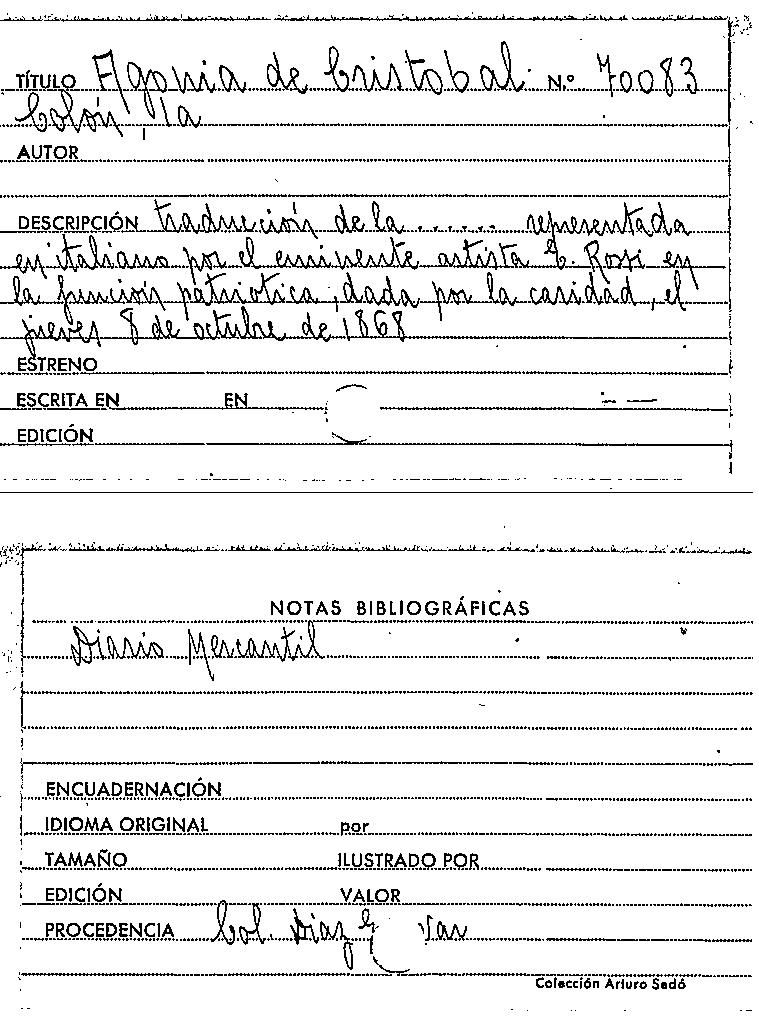 TÍTULO Agonia de Cristobal N.º 70083
Colón, la
AUTOR
DESCRIPCIÓN traducción de la ...... representada
en italiano por el eminente artista E. Rossi en
la función patriotica, dada por la caridad, el
jueves 8 de octubre de 1868
ESTRENO
ESCRITA EN EN
EDICIÓN
NOTAS BIBLIOGRÁFICAS
Diario Mercantil
ENCUADERNACIÓN
IDIOMA ORIGINAL por
TAMAÑO ILUSTRADO POR
EDICIÓN VALOR
PROCEDENCIA Col. Díaz
Colección Arturo Sedó